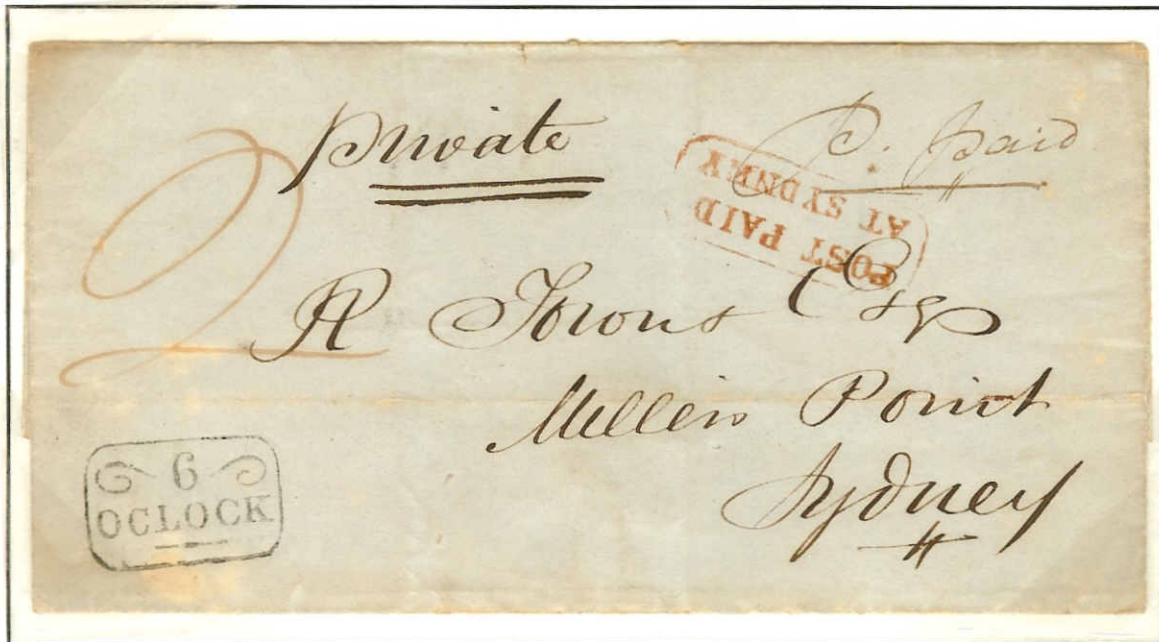 private
P. paid
POST PAID
AT SYDNEY
2
R Towns Esq
Millers Point
Sydney
6
OCLOCK